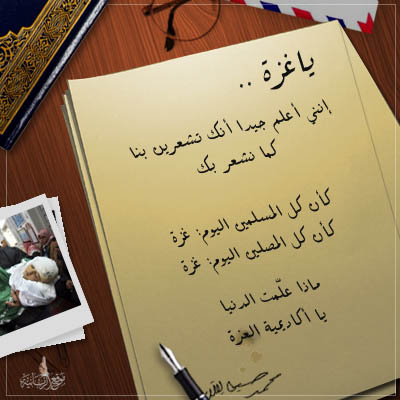 يا غزة ..
إنني أعلم جيدا أنك تشعرين بنا
كما نشعر بك
كأن كل المسلمين اليوم: غزة
كأن كل المصلين اليوم: غزة
ماذا علّمت الدنيا
يا أكاديمية العزة